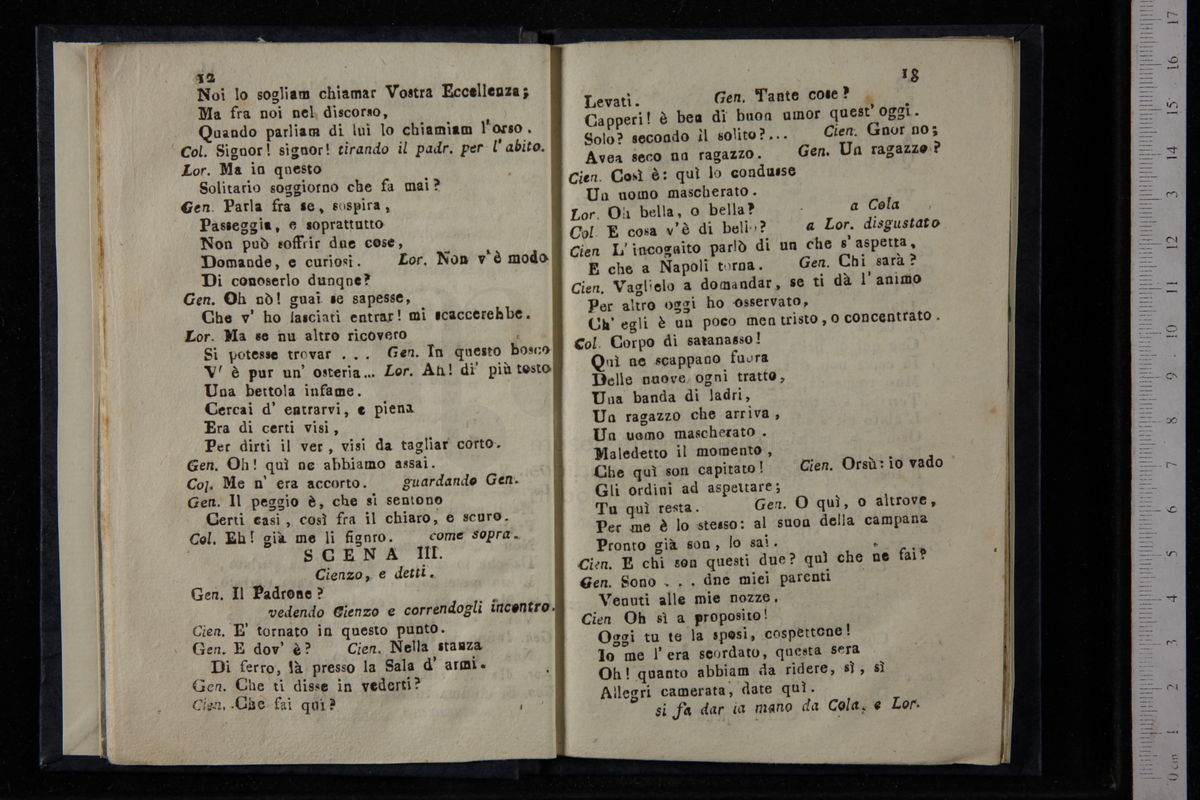 12
Noi lo sogliam chiamar Vostra Eccellenza;
Ma fra noi nel discorso,
Quando parliam di lui lo chiamiam l'orso.
Col. Signor! signor! tirando il padr. per l'abito.
Lor. Ma in questo
Solitario soggiorno che fa mai?
Gen. Parla fra se, sospira,
Passeggia, e soprattutto
Non può soffrir due cose,
Domande, e curiosi. Lor. Non v'è modo
Di conoserlo dunqne?
Gen. Oh nò! guai se sapesse,
Che v' ho lasciati entrar! mi scaccerebbe.
Lor. Ma se nu altro ricovero
Si potesse trovar . . . Gen. In questo bosco
V' è pur un' osteria... Lor. Ah! di' più tosto
Una bettola infame.
Cercai d' entrarvi, e piena
Era di certi visi,
Per dirti il ver, visi da tagliar corto.
Gen. Oh! quì ne abbiamo assai.
Col. Me n' era accorto. guardando Gen.
Gen. Il peggio è, che si sentono
Certi casi, così fra il chiaro, e scuro.
Col. Eh! già me li fignro. come sopra.
SCENA III.
Cienzo, e detti.
Gen. Il Padrone?
vedendo Cienzo e correndogli incontro.
Cien. E' tornato in questo punto.
Gen. E dov' è? Cien. Nella stanza
Di ferro, là presso la Sala d' armi.
Gen. Che ti disse in vederti?
Cien. Che fai qui?
13
Levati. Gen. Tante cose?
Capperi! è ben di buon umor quest' oggi.
Solo? secondo il solito?... Cien. Gnor no;
Avea seco un ragazzo. Gen. Un ragazzo?
Cien. Così è: quì lo condusse
Un uomo mascherato.
Lor. Oh bella, o bella? a Cola
Col. E cosa v'è di bello? a Lor. disgustato
Cien L'incognito parlò di un che s'aspetta,
E che a Napoli torna. Gen. Chi sarà?
Cien. Vaglielo a domandar, se ti dà l'animo
Per altro oggi ho osservato,
Ch' egli è un poco men tristo, o concentrato.
Col. Corpo di satanasso!
Quì ne scappano fuora
Delle nuove ogni tratto,
Una banda di ladri,
Un ragazzo che arriva,
Un uomo mascherato.
Maledetto il momento,
Che quì son capitato! Cien. Orsù: io vado
Gli ordini ad aspettare;
Tu quì resta. Gen. O quì, o altrove,
Per me è lo stesso: al suon della campana
Pronto già son, lo sai.
Cien. E chi son questi due? quì che ne fai?
Gen. Sono . . . dne miei parenti
Venuti alle mie nozze.
Cien Oh sì a proposito!
Oggi tu te la sposi, cospettone!
Io me l'era scordato, questa sera
Oh! quanto abbiam da ridere, sì, sì
Allegri camerata, date quì.
si fa dar la mano da Cola, e Lor.